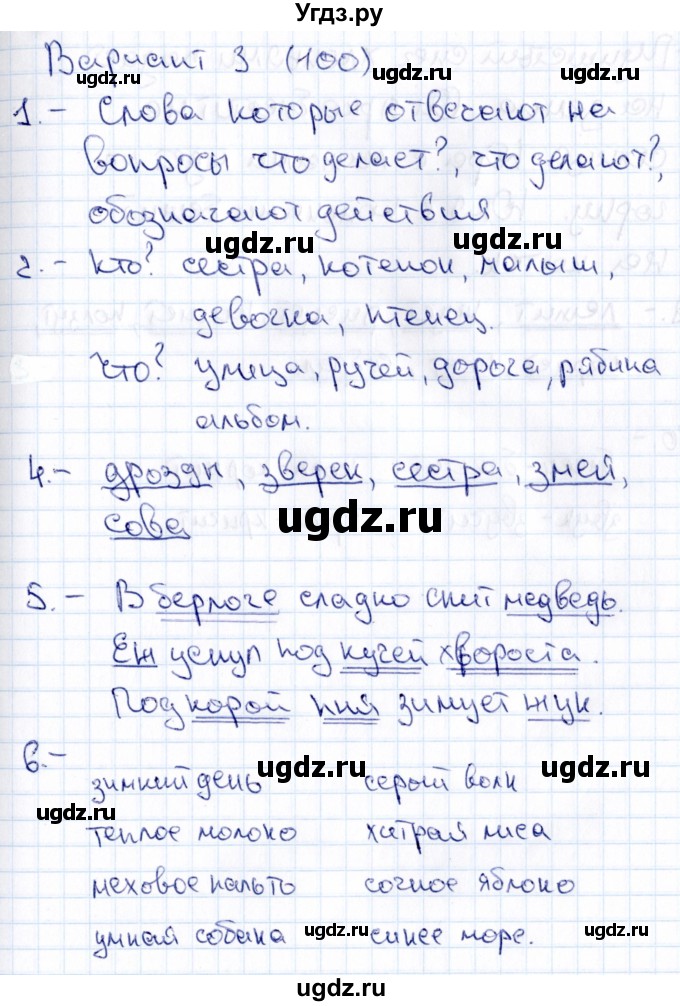 Угдз.ру
Вариант 3 (100)
ugdz.ru ugdz.ru
1.- Слова которые отвечают на
вопросы что делает?, что делают?,
ugdz.ru ugdz.ru
обозначают действия
ugdz.ru
2.- Кто? сестра, котенок, малыш,
ugdz.ru ugdz.ru
девочка, птенец.
Что? улица, ручей, дорога, рябина
ugdz.ru ugdz.ru
альбом.
4.- дрозды, зверек, сестра, змей,
ugdz.ru ugdz.ru
сова
ugdz.ru
5.- В берлоге сладко спит медведь.
ugdz.ru ugdz.ru
Еж уснул под кучей хвороста.
Под корой пня зимует жук.
ugdz.ru ugdz.ru
6.-
ugdz.ru
зимний день серый волк
ugdz.ru ugdz.ru
теплое молоко хитрая лиса
меховое пальто сочное яблоко
ugdz.ru ugdz.ru
умная собака синее море.
ugdz.ru